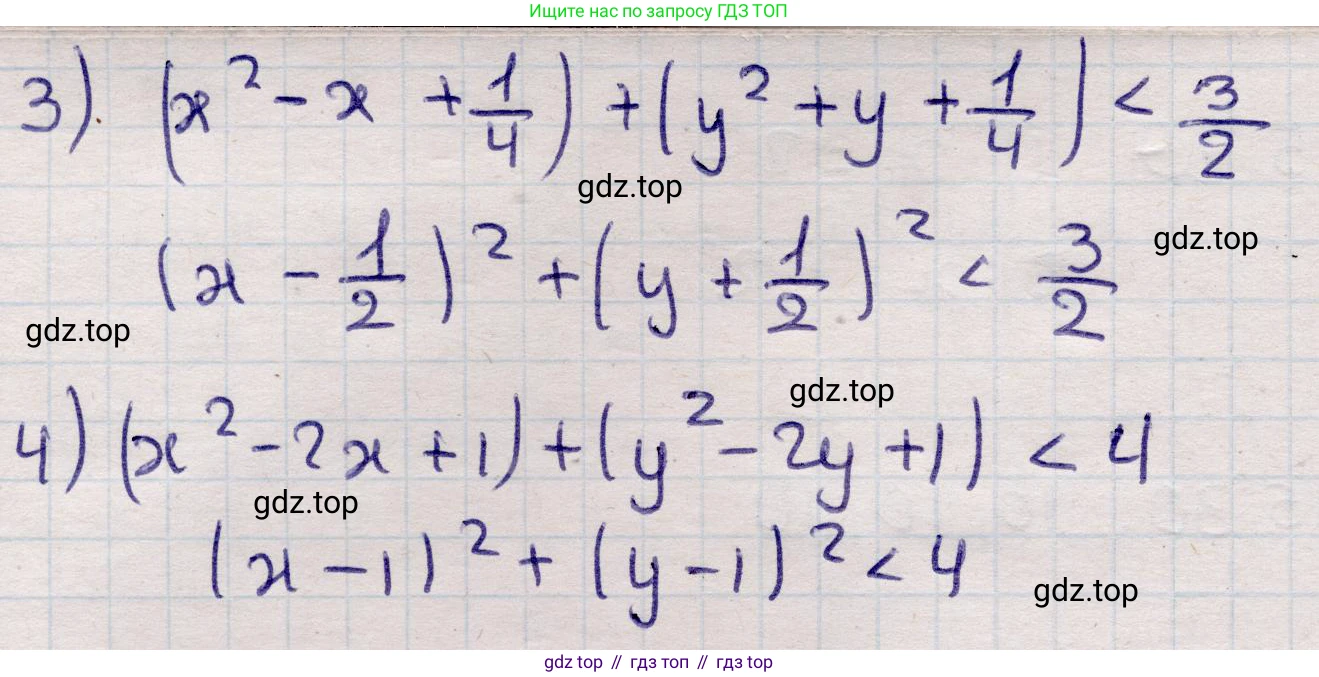 Ищите нас по запросу ГДЗ ТОП
3) (x² - x + 1/4) + (y² + y + 1/4) < 3/2
gdz.top
(x - 1/2)² + (y + 1/2)² < 3/2
gdz.top
gdz.top
gdz.top
4) (x² - 2x + 1) + (y² - 2y + 1) < 4
gdz.top
(x - 1)² + (y - 1)² < 4
gdz.top
gdz.top // гдз топ // гдз top